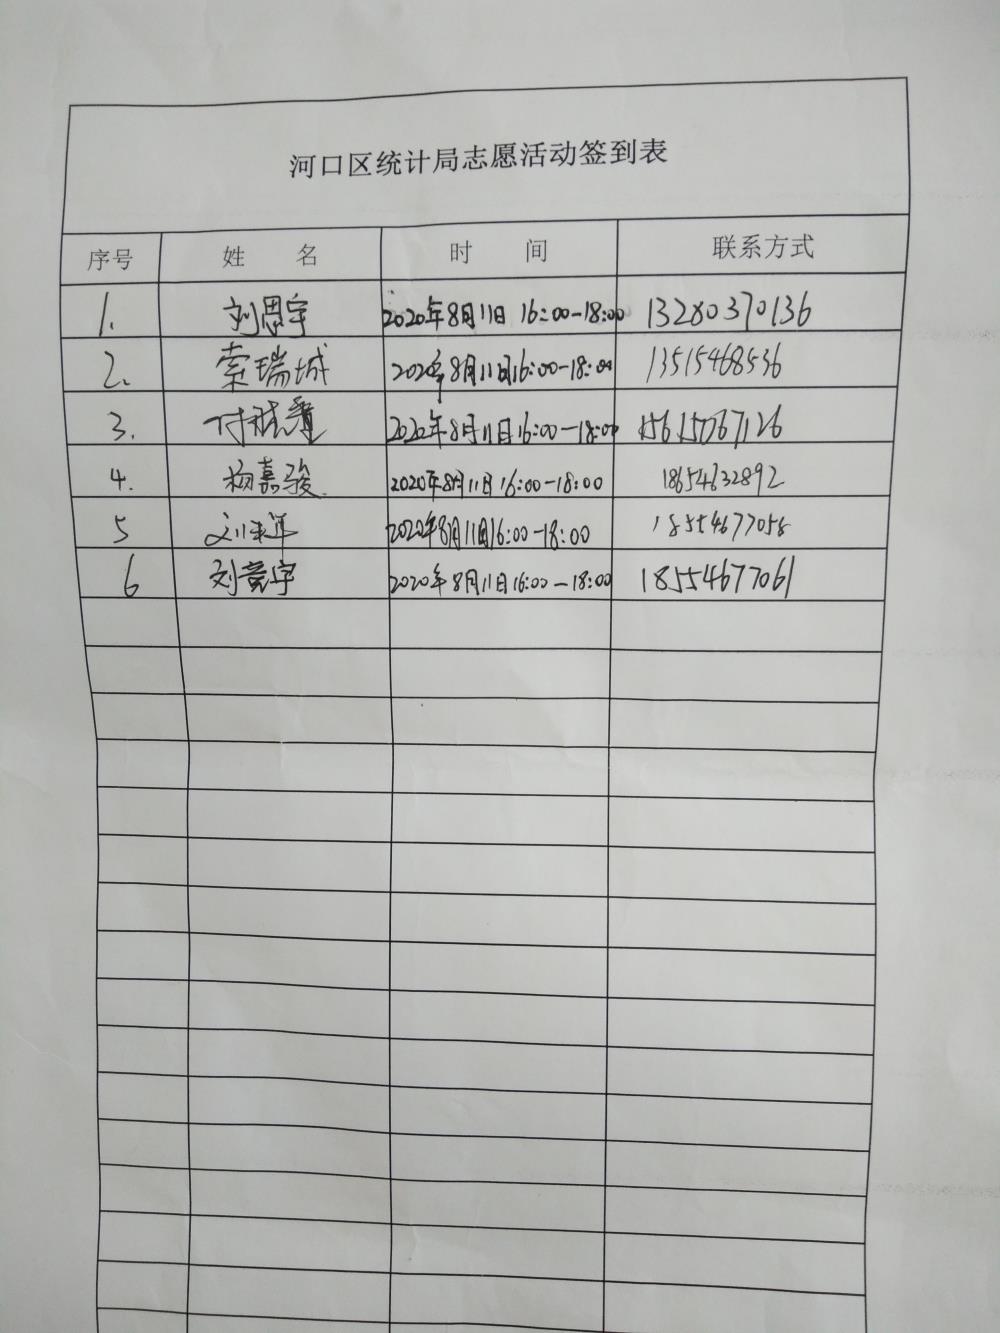 河口区统计局志愿活动签到表
序号 姓 名 时 间 联系方式
1. 刘思宇 2020年8月11日 16:00-18:00 13280370136
2. 索瑞城 2020年8月11日16:00-18:00 13515468536
3. 2020年8月11日16:00-18:00 15615067126
4. 杨嘉骏 2020年8月11日16:00-18:00 18654632892
5 2020年8月11日16:00-18:00 18554677058
6 刘竞宇 2020年8月11日16:00-18:00 18554677061